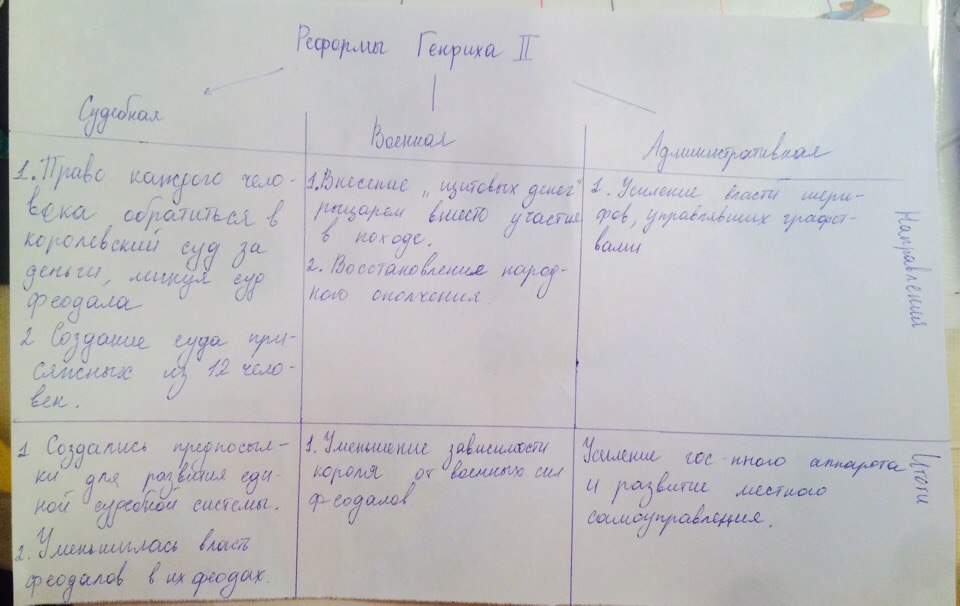 Реформы Генриха II
Судебная
Военная
Административная
1. Право каждого чело-
века обратиться в
королевский суд за
деньги, минуя суд
феодала
2 Создание суда при-
сяжных из 12 чело-
век.
1. Внесение „щитовых денег"
рыцарем вместо участие
в походе.
2. Восстановления народ-
ного ополчения
1. Усиление власти шери-
фов, управлявших графст-
вами
Направления
1 Создались предпосыл-
ки для развития еди-
ной судебной системы.
2. Уменьшилась власть
феодалов в их феодах.
1. Уменьшение зависимости
короля от военных сил
феодалов.
Усиление гос-нного аппарата
и развитие местного
самоуправления.
Итоги